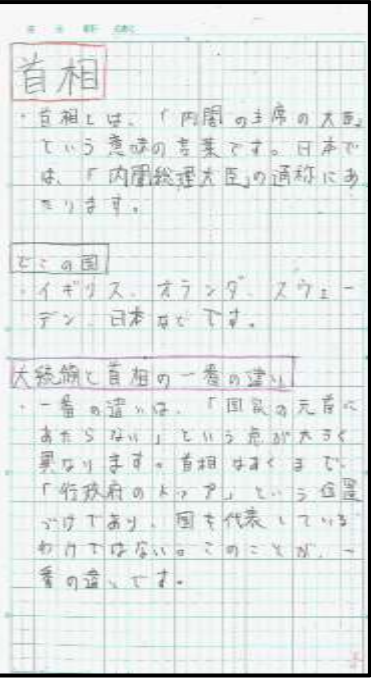 首相
・首相とは、「内閣の主席の大臣」
という意味の言葉です。日本で
は、「内閣総理大臣」の通称にあ
たります。
どこの国
・イギリス、オランダ、スウェー
デン、日本などです。
大統領と首相の一番の違い
・一番の違いは、「国家の元首に
あたらない」という点が大きく
異なります。首相はあくまで、
「行政府のトップ」という位置
づけであり、国を代表している
わけではない。このことが、一
番の違いです。